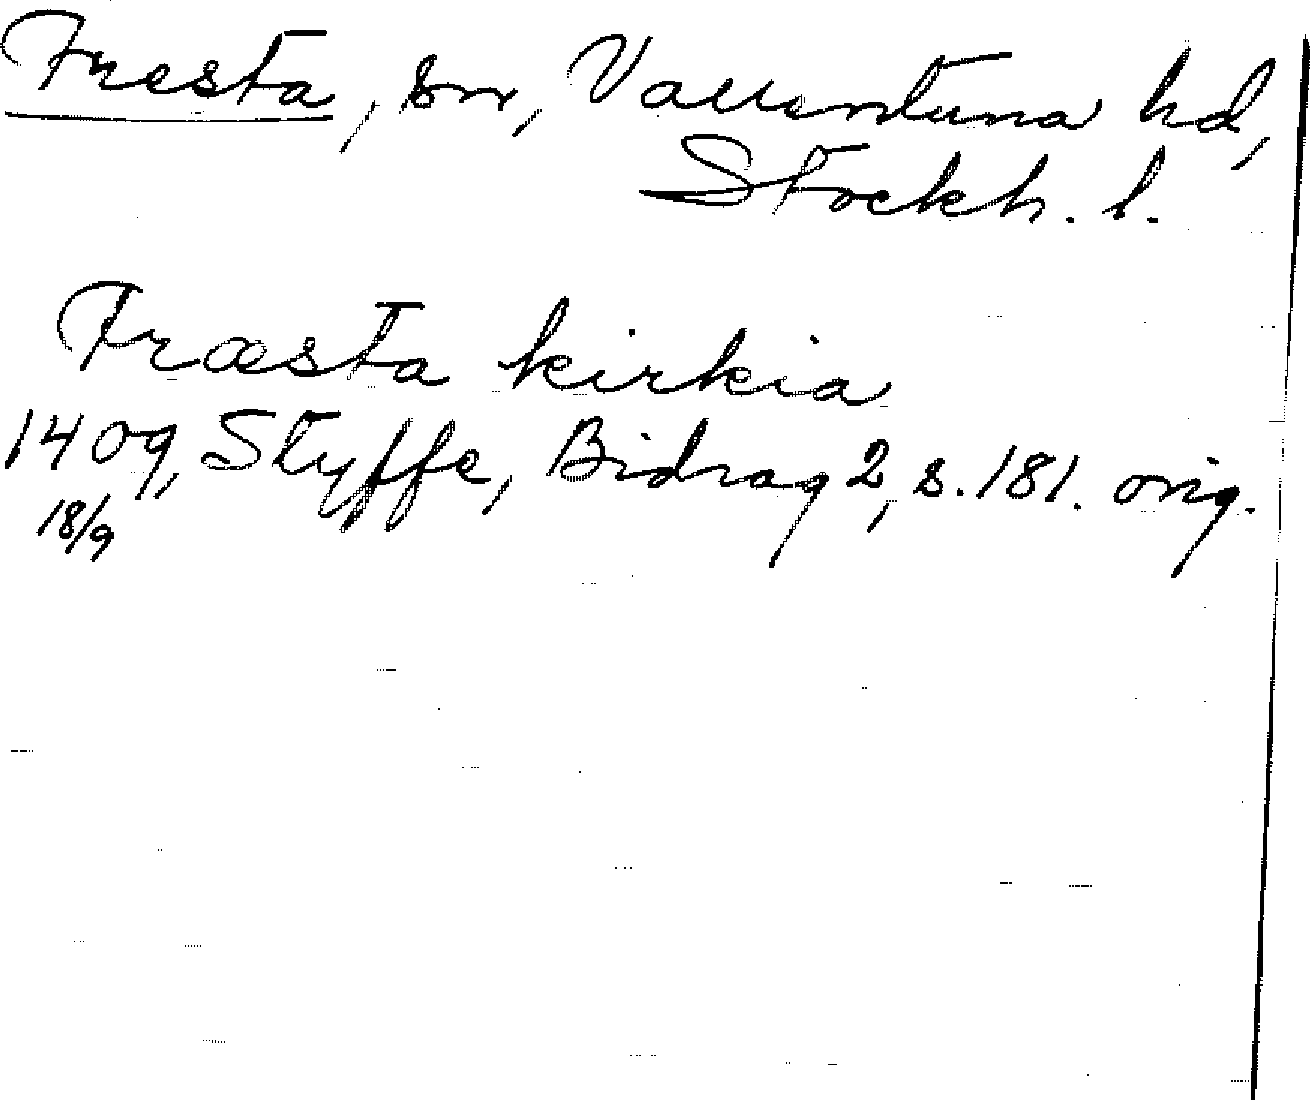 Fresta, sn, Vallentuna hd,
Stockh. l.
Fræsta kirkia
1409, Styffe, Bidrag 2, s. 181. orig.
18/9